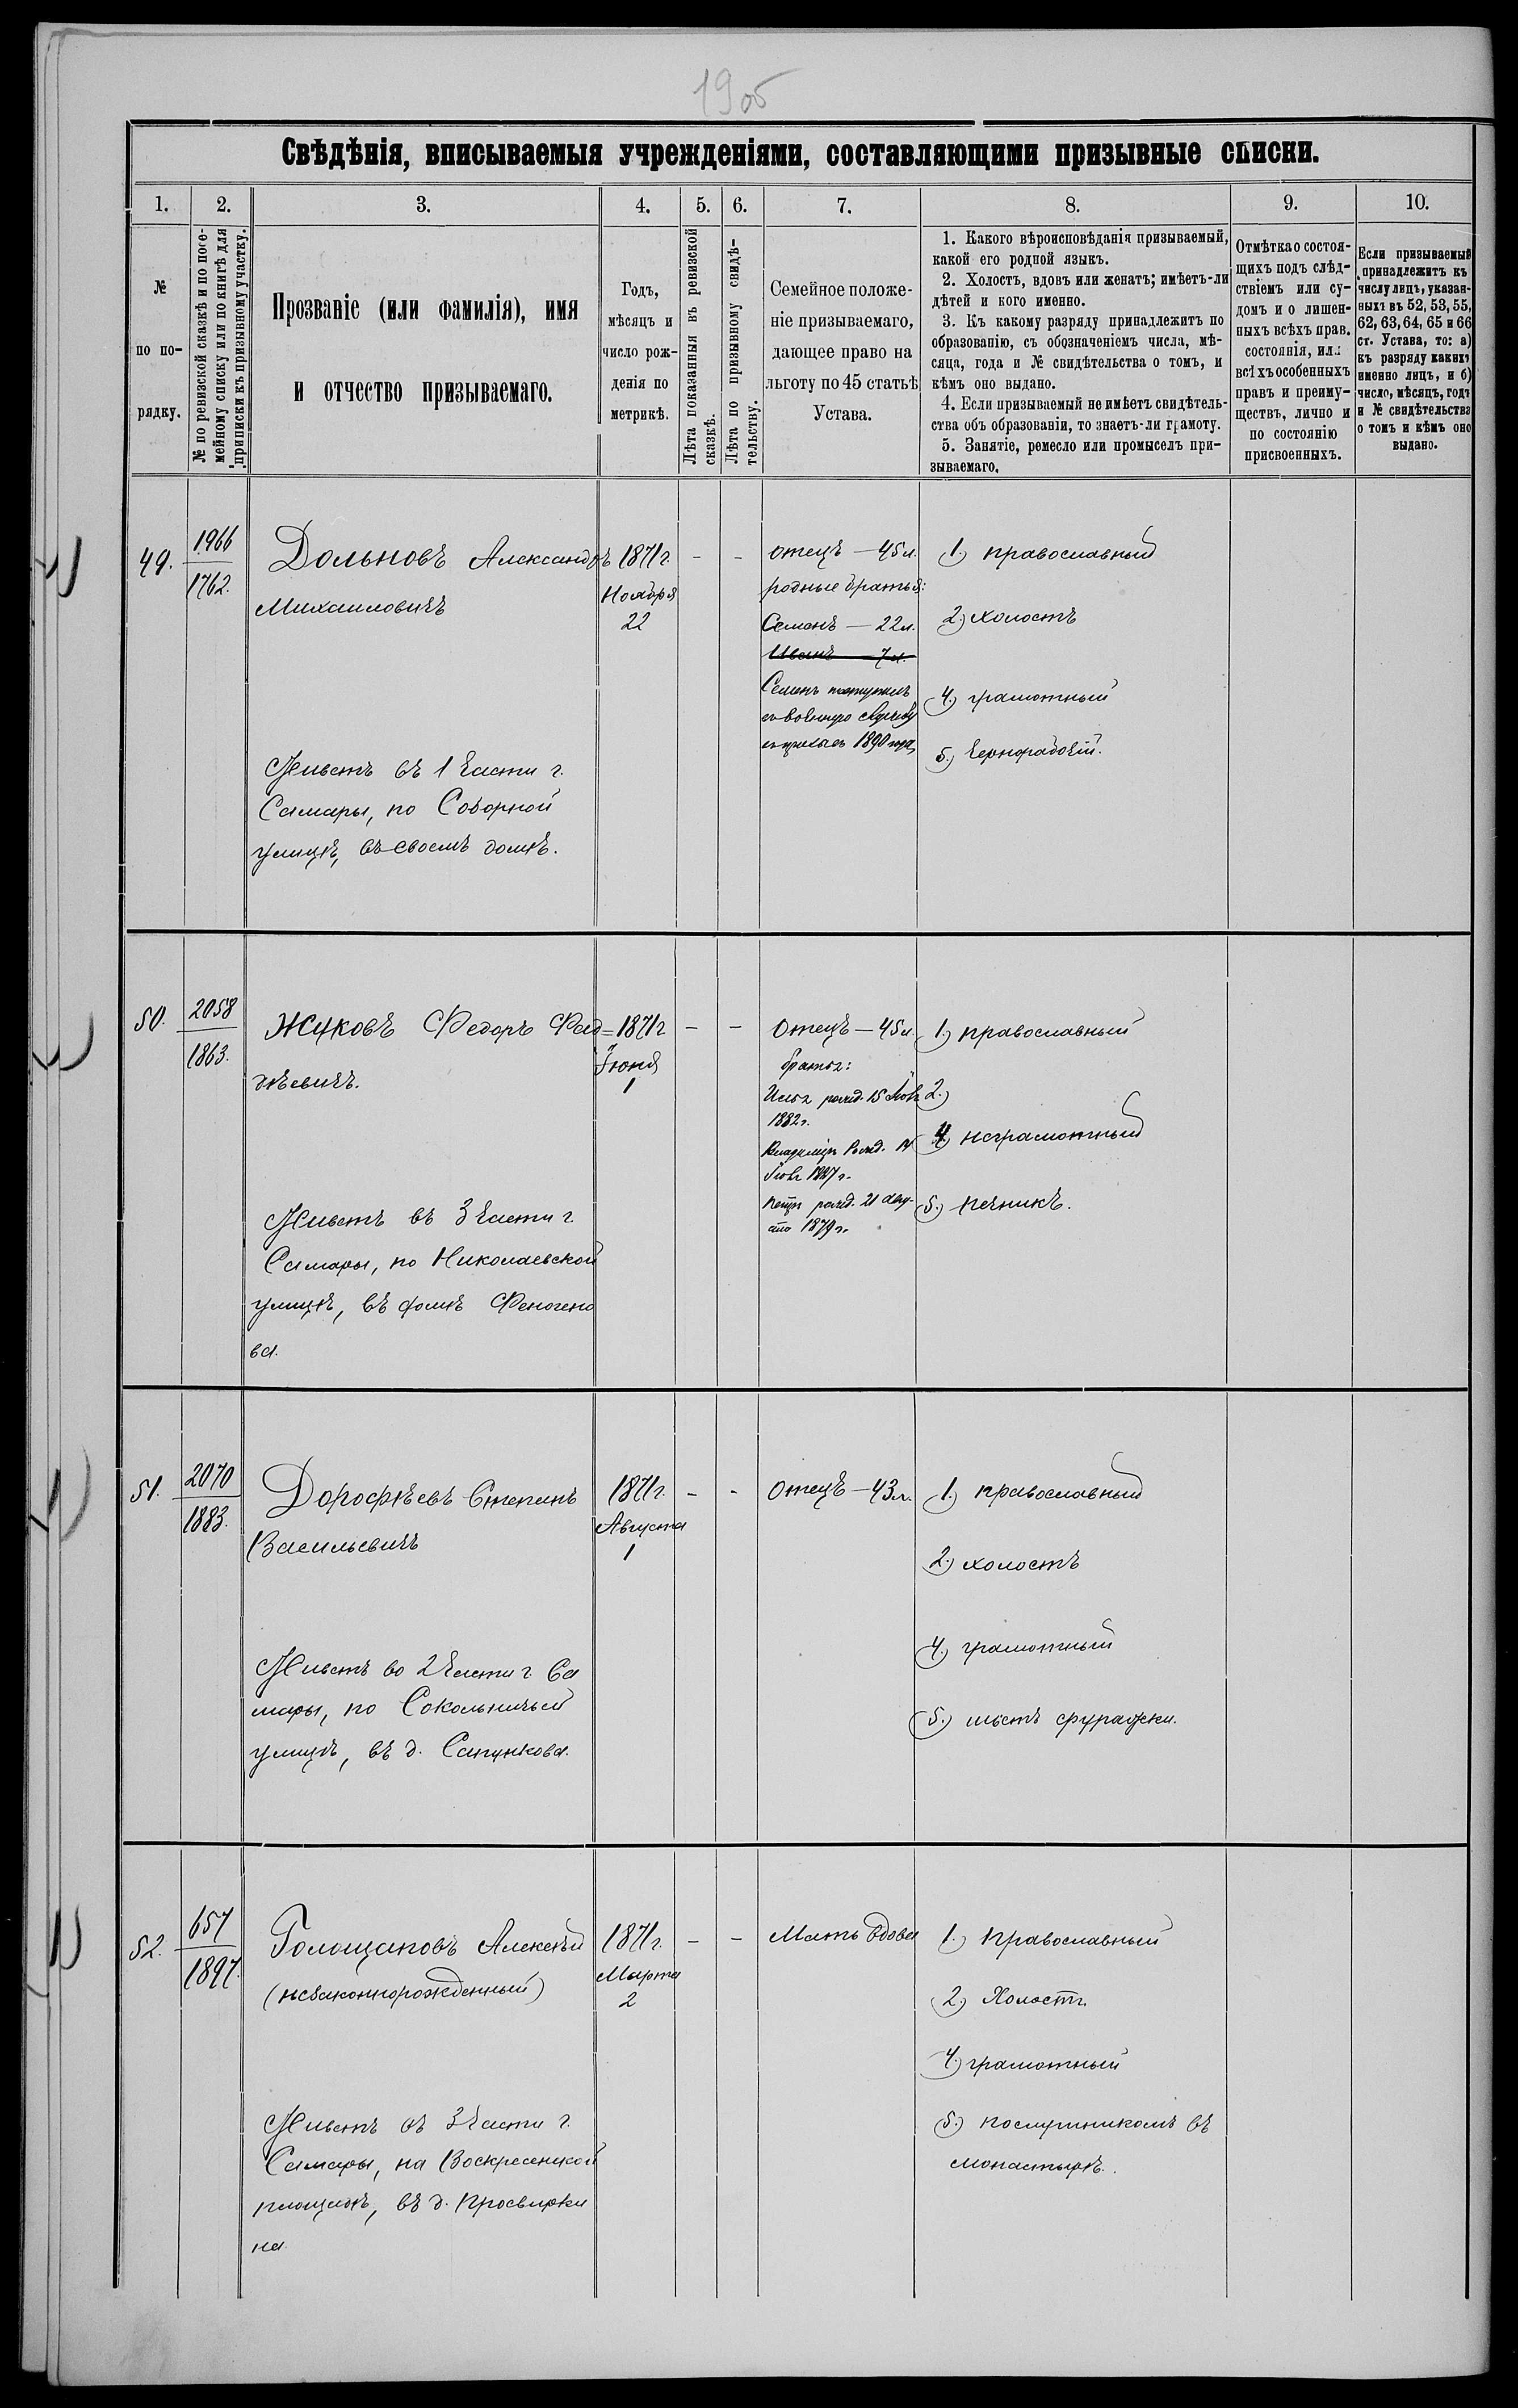 19об
Свѣдѣнія, вписываемыя учрежденіями, составляющими призывные списки.
1. 2. 3. 4. 5. 6. 7. 8. 9. 10.
№
по по-
рядку.
№ по ревизской сказкѣ и по посе-
мейному списку или по книгѣ для
приписки къ призывному участку.
Прозваніе (или фамилія), имя
и отчество призываемаго.
Годъ,
мѣсяцъ и
число рож-
денія по
метрикѣ.
Лѣта показанныя въ ревизской
сказкѣ.
Лѣта по призывному свидѣ-
тельству.
Семейное положе-
ніе призываемаго,
дающее право на
льготу по 45 статьѣ
Устава.
1. Какого вѣроисповѣданія призываемый,
какой его родной языкъ.
2. Холостъ, вдовъ или женатъ; имѣетъ-ли
дѣтей и кого именно.
3. Къ какому разряду принадлежитъ по
образованію, съ обозначеніемъ числа, мѣ-
сяца, года и № свидѣтельства о томъ, и
кѣмъ оно выдано.
4. Если призываемый не имѣетъ свидѣтель-
ства объ образованіи, то знаетъ-ли грамоту.
5. Занятіе, ремесло или промыселъ при-
зываемаго.
Отмѣтка о состоя-
щихъ подъ слѣд-
ствіемъ или су-
домъ и о лишен-
ныхъ всѣхъ прав.
состоянія, или
всѣхъ особенныхъ
правъ и преиму-
ществъ, лично и
по состоянію
присвоенныхъ.
Если призываемый
принадлежитъ къ
числу лицъ, указан-
ныхъ въ 52, 53, 55,
62, 63, 64, 65 и 66
ст. Устава, то: а)
къ разряду какихъ
именно лицъ, и б)
число, мѣсяцъ, годъ
и № свидѣтельства
о томъ и кѣмъ оно
выдано.
49.
1966
1762.
Дольновъ Александръ
Михаиловичъ
Живетъ въ 1 части г.
Самары, по Соборной
улицѣ, въ своемъ домѣ.
1871 г.
Ноября
22
- -
отецъ — 45 л.
родные братья:
Семенъ — 22 л.
Иванъ — 7 л.
Семенъ поступилъ
въ военную службу
въ призывъ 1890 года
1.) православный
2.) холостъ
4.) грамотный
5.) чернорабочій.
50.
2058
1863.
Жуковъ Федоръ Фад=
дѣевичъ.
Живетъ въ 3 части г.
Самары, по Николаевской
улицѣ, въ домѣ Феногено
ва.
1871 г
Іюня
1
- -
Отецъ — 45 л.
братья:
Илья рожд. 15
1882 г.
Владиміръ рожд. 14
1887 г.
Петръ рожд. 21 Авгу-
ста 1879 г.
1.) православный
2.)
4.) неграмотный
5.) печникъ.
51.
2070
1883.
Дорофѣевъ Степанъ
Васильевичъ
Живетъ во 2 части г. Са
мары, по Сокольничьей
улицѣ, въ д. Сапункова.
1871 г.
Августа
1
- -
Отецъ — 43 л.
1.) православный
2.) холостъ
4.) грамотный
5.) шьетъ фуражки.
52.
657
1897.
Голощаповъ Алексѣй
(незаконнорожденный)
Живетъ въ 3 части г.
Самары, на Воскресенской
площади, въ д. Просвирки
на
1871 г.
Марта
2
- -
Мать вдова
1.) Православный
2.) Холостъ
4.) грамотный
5.) послушникомъ въ
монастырѣ.